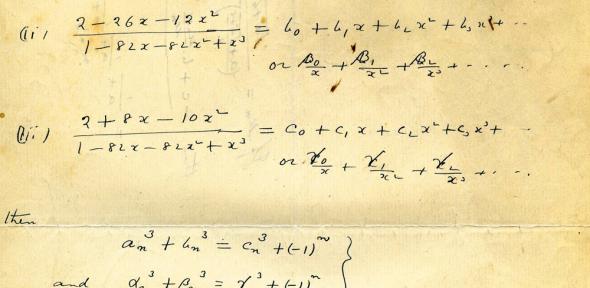 (ii) (2 − 26x − 12x²)/(1 − 82x − 82x² + x³) = b₀ + b₁x + b₂x² + b₃x³ + ⋯
or β₀/x + β₁/x² + β₂/x³ + ⋯
(iii) (2 + 8x − 10x²)/(1 − 82x − 82x² + x³) = c₀ + c₁x + c₂x² + c₃x³ + ⋯
or γ₀/x + γ₁/x² + γ₂/x³ + ⋯
then
aₙ³ + bₙ³ = cₙ³ + (−1)ⁿ
and αₙ³ + βₙ³ = γ³ + (−1)ⁿ